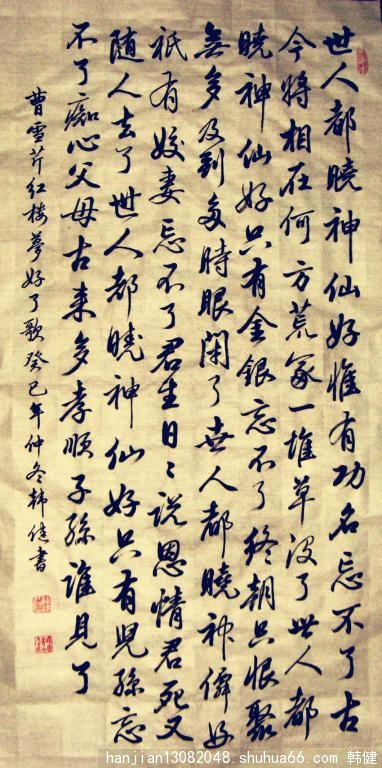 世人都曉神仙好惟有功名忘不了古
今將相在何方荒冢一堆草没了世人都
曉神仙好只有金銀忘不了終朝只恨聚
無多及到多時眼閉了世人都曉神僊好
祇有姣妻忘不了君生日〻說恩情君死又
随人去了世人都曉神仙好只有兒孫忘
不了痴心父母古來多孝順子孫誰見了
曹雪芹红楼夢好了歌癸巳年仲冬韩健書
hanjian13082048.shuhua66.com 韩健